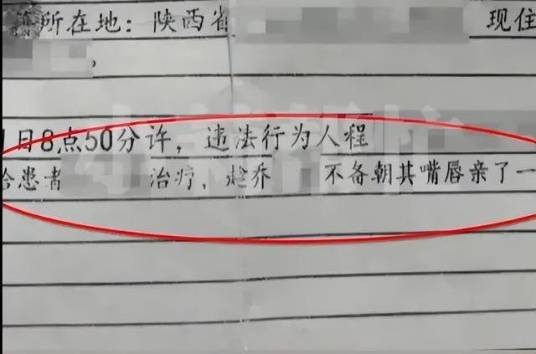 所在地：陕西省 现住
。
日8点50分许，违法行为人程
给患者 治疗，趁乔 不备朝其嘴唇亲了一